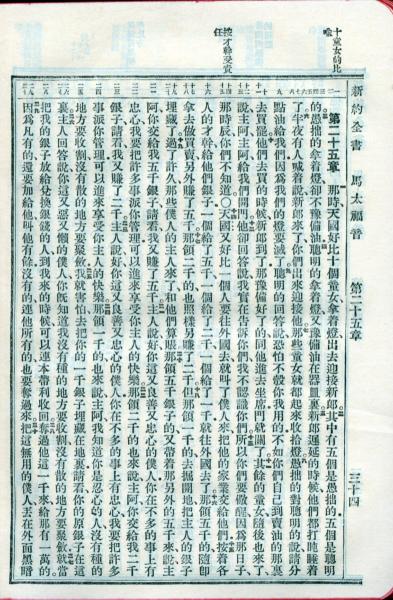 新約全書　馬太福音　第二十五章　三十四
十童女的比喻
按才幹受責任
第二十五章　那時天國好比十個童女、拿着燈、出去迎接新郎、其中有五個是愚拙的、五個是聰明
的、愚拙的拿着燈、卻不豫備油、聰明的拿着燈、又豫備油在器皿裏、新郎遲延的時候、他們都打盹睡着
了、半夜有人喊着說、新郎來了、你們出來迎接他、那些童女就都起來收拾燈、愚拙的對聰明的說、請分
點油給我們、因爲我們的燈要滅了、聰明的回答說、恐怕不彀你我用的、不如你們自己到賣油的那裏
去買罷、他們去買的時候、新郎到了、那豫備好了的、同他進去坐席、門就關了、其餘的童女隨後也來了、
說、主阿主阿、給我們開門、他卻回答說、我實在告訴你們、我不認識你們、所以你們要儆醒、因爲那日子
那時辰你們不知道、〇天國又好比一個人要往外國去、就叫了僕人來、把他的家業交給他們、按着各
人的才幹、給他們銀子、一個給了五千、一個給了二千、一個給了一千、就往外國去了、那領五千的、隨卽
拿去做買賣、另外賺了五千、那領二千的、也照樣另賺了二千、但那領一千的、去掘開地、把主人的銀子
埋藏了、過了許久、那些僕人的主人來了、和他們算賬、那領五千銀子的、又帶着那另外的五千來、說、主
阿、你交給我五千銀子、請看、我又賺了五千、主人說、好、你這又良善又忠心的僕人、你在不多的事上有
忠心、我要把許多事派你管理、可以進來享受你主人的快樂、那領二千的也來說、主阿、你交給我二千
銀子、請看、我又賺了二千、主人說、好、你這又良善又忠心的僕人、你在不多的事上有忠心、我要把許多
事派你管理、可以進來享受你主人的快樂、那領一千的、也來說、主阿、我知道你是忍心的人、沒有種的
地方要收割、沒有散的地方要聚斂、我就害怕、去把你的一千銀子埋藏在地裏、請看、你的原銀子在這
裏、主人回答說、你這又惡又懶的僕人、你旣知道我沒有種的地方要收割、沒有散的地方要聚斂、就當
把我的銀子放給兌換銀錢的人、到我來的時候、可以連本帶利收回、奪過他這一千來、給那有一萬的、
因爲凡有的、還要加給他、叫他有餘、沒有的、連他所有的、也要奪過來、把這無用的僕人、丟在外面黑暗